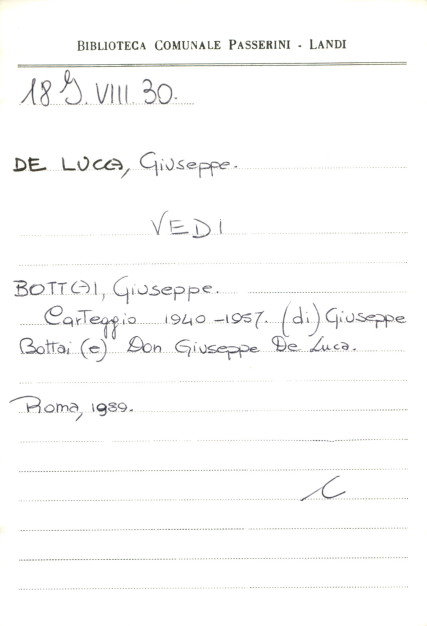 BIBLIOTECA COMUNALE PASSERINI - LANDI
18 G. VIII 30.
DE LUCA, Giuseppe.
VEDI
BOTTAI, Giuseppe.
Carteggio 1940-1957. (di) Giuseppe
Bottai (e) Don Giuseppe De Luca.
Roma, 1989.